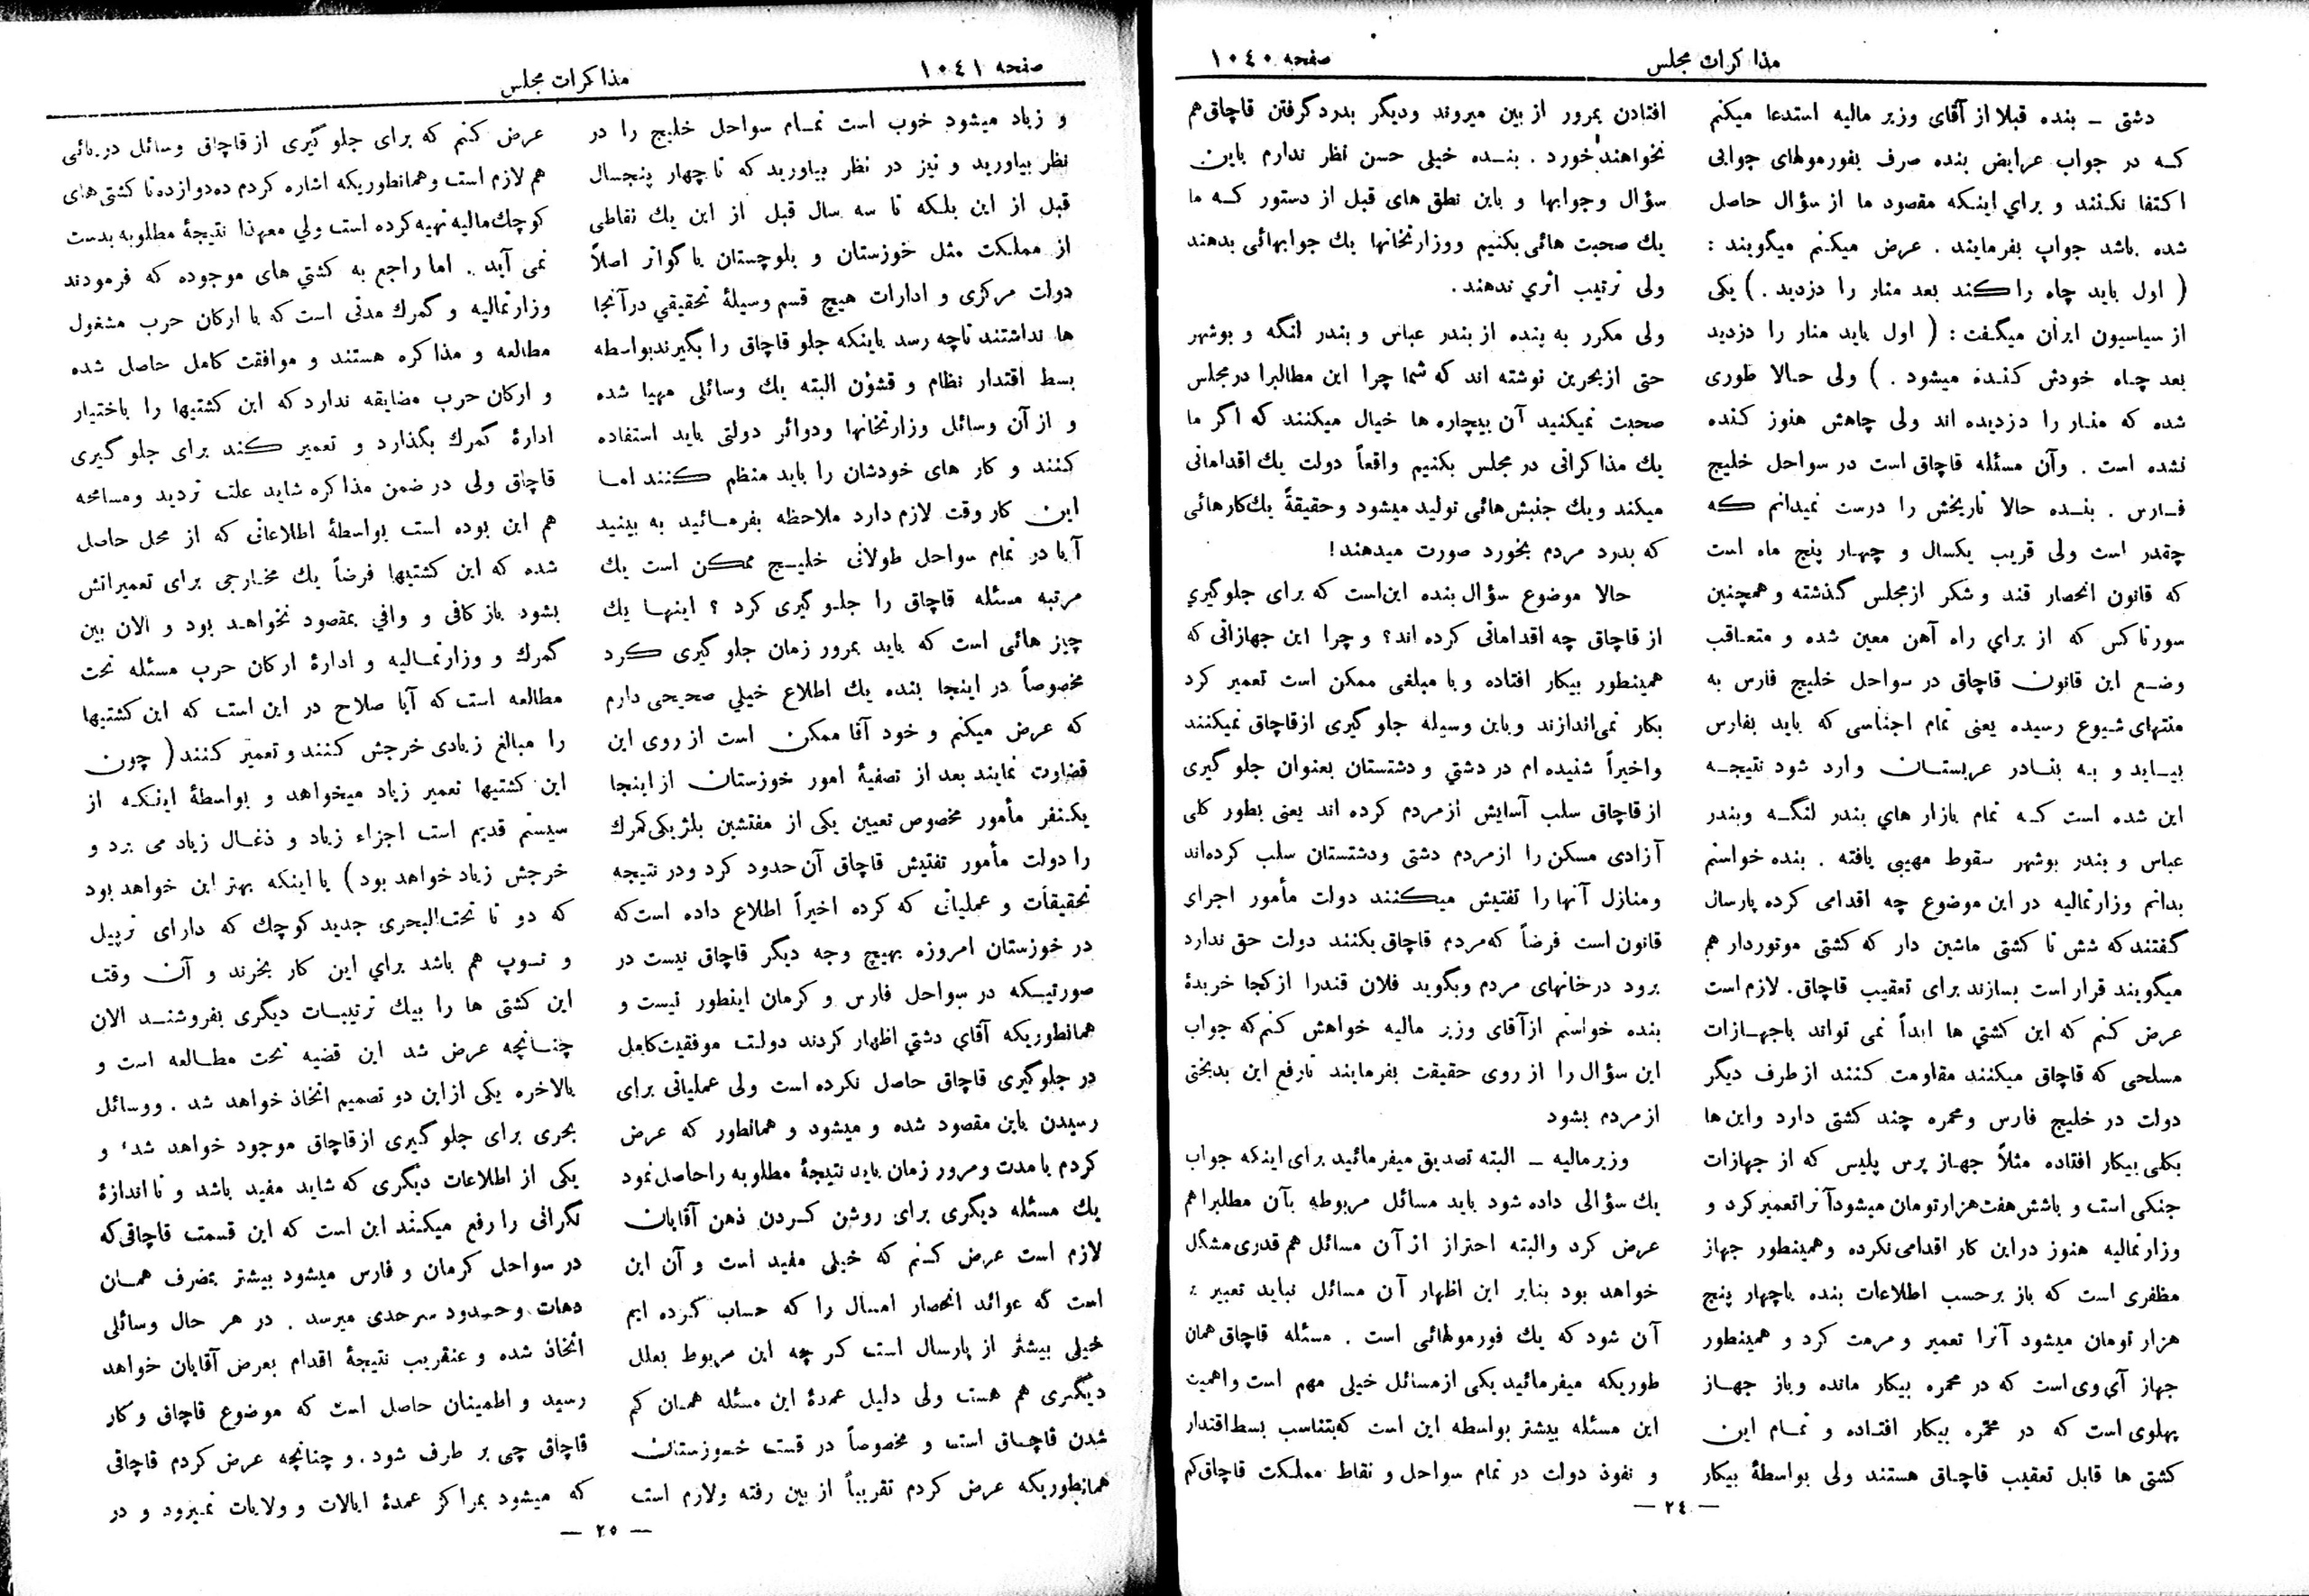 مذاکرات مجلس
صفحه ۱۰۴۰
دشتی ـ بنده قبلا از آقای وزیر مالیه استدعا میکنم
کـه در جواب عرایض بنده صرف بفورمولهای جوابی
اکتفا نکنند و برای اینکه مقصود ما از سؤال حاصل
شده باشد جواب بفرمایند . عرض میکنم میگویند :
( اول باید چاه را کند بعد منار را دزدید . ) یکی
از سیاسیون ایران میگفت : ( اول باید منار را دزدید
بعد چاه خودش کنده میشود . ) ولی حالا طوری
شده که منار را دزدیده اند ولی چاهش هنوز کنده
نشده است . وآن مسئله قاچاق است در سواحل خلیج
فارس . بنده حالا تاریخش را درست نمیدانم که
چقدر است ولی قریب یکسال و چهار پنج ماه است
که قانون انحصار قند و شکر از مجلس گذشته و همچنین
سورتاکس که از برای راه آهن معین شده و متعاقب
وضع این قانون قاچاق در سواحل خلیج فارس به
منتهای شیوع رسیده یعنی تمام اجناسی که باید بفارس
بیاید و به بنادر عربستان وارد شود نتیجه
این شده است که تمام بازار های بندر لنگه وبندر
عباس و بندر بوشهر سقوط مهیبی یافته . بنده خواستم
بدانم وزارتمالیه در این موضوع چه اقدامی کرده پارسال
گفتند که شش تا کشتی ماشین دار که کشتی موتوردار هم
میگویند قرار است بسازند برای تعقیب قاچاق . لازم است
عرض کنم که این کشتی ها ابداً نمی تواند باجهازات
مسلحی که قاچاق میکنند مقاومت کنند از طرف دیگر
دولت در خلیج فارس و محمره چند کشتی دارد واین ها
بکلی بیکار افتاده مثلاً جهاز پرس پلیس که از جهازات
جنگی است و باشش هفت هزار تومان میشود آنرا تعمیر کرد و
وزارتمالیه هنوز در این کار اقدامی نکرده و همینطور جهاز
مظفری است که باز برحسب اطلاعات بنده باچهار پنج
هزار تومان میشود آنرا تعمیر و مرمت کرد و همینطور
جهاز آی وی است که در محمره بیکار مانده وباز جهاز
پهلوی است که در محمره بیکار افتاده و تمام این
کشتی ها قابل تعقیب قاچاق هستند ولی بواسطهٔ بیکار
افتادن بمرور از بین میروند ودیگر بدرد گرفتن قاچاق هم
نخواهند خورد . بنده خیلی حسن نظر ندارم باین
سؤال وجوابها و باین نطق های قبل از دستور که ما
یك صحبت هائی بکنیم ووزارتخانها یك جوابهائی بدهند
ولی ترتیب اثری ندهند .
ولی مکرر به بنده از بندر عباس و بندر لنگه و بوشهر
حتی از بحرین نوشته اند که شما چرا این مطالبرا در مجلس
صحبت نمیکنید آن بیچاره ها خیال میکنند که اگر ما
یك مذاکراتی در مجلس بکنیم واقعاً دولت یك اقداماتی
میکند ویك جنبش هائی تولید میشود و حقیقةً یك کارهائی
که بدرد مردم بخورد صورت میدهند !
حالا موضوع سؤال بنده این است که برای جلوگیری
از قاچاق چه اقداماتی کرده اند ؟ و چرا این جهازاتی که
همینطور بیکار افتاده و با مبلغی ممکن است تعمیر کرد
بکار نمی اندازند و باین وسیله جلو گیری از قاچاق نمیکنند
واخیراً شنیده ام در دشتی و دشتستان بعنوان جلو گیری
از قاچاق سلب آسایش از مردم کرده اند یعنی بطور کلی
آزادی مسکن را از مردم دشتی ودشتستان سلب کرده‌اند
ومنازل آنها را تفتیش میکنند دولت مأمور اجرای
قانون است فرضاً که مردم قاچاق بکنند دولت حق ندارد
برود در خانهای مردم وبگوید فلان قندرا از کجا خریدهٔ
بنده خواستم از آقای وزیر مالیه خواهش کنم که جواب
این سؤال را از روی حقیقت بفرمایند تا رفع این بدبختی
از مردم بشود
وزیر مالیه ـ البته تصدیق میفرمائید برای اینکه جواب
یك سؤالی داده شود باید مسائل مربوطه بآن مطلبرا هم
عرض کرد والبته احتراز از آن مسائل هم قدری مشکل
خواهد بود بنابر این اظهار آن مسائل نباید تعبیر :
آن شود که یك فورمولهائی است . مسئله قاچاق همان
طوریکه میفرمائید یکی از مسائل خیلی مهم است واهمیت
این مسئله بیشتر بواسطه این است که بتناسب بسط اقتدار
و نفوذ دولت در تمام سواحل و نقاط مملکت قاچاق کم
— ۲٤ —
صفحه ۱۰٤۱
مذاکرات مجلس
و زیاد میشود خوب است تمام سواحل خلیج را در
نظر بیاورید و نیز در نظر بیاورید که تا چهار پنجسال
قبل از این بلکه تا سه سال قبل از این یك نقاطی
از مملکت مثل خوزستان و بلوچستان یا گواتر اصلاً
دولت مرکزی و ادارات هیچ قسم وسیلهٔ تحقیقی در آنجا
ها نداشتند تاچه رسد باینکه جلو قاچاق را بگیرند بواسطه
بسط اقتدار نظام و قشون البته یك وسائلی مهیا شده
و از آن وسائل وزارتخانها ودوائر دولتی باید استفاده
کنند و کار های خودشان را باید منظم کنند اما
این کار وقت لازم دارد ملاحظه بفرمائید به بینید
آیا در تمام سواحل طولانی خلیج ممکن است یك
مرتبه مسئله قاچاق را جلو گیری کرد ؟ اینها یك
چیز هائی است که باید بمرور زمان جلو گیری کرد
مخصوصاً در اینجا بنده یك اطلاع خیلی صحیحی دارم
که عرض میکنم و خود آقا ممکن است از روی این
قضاوت نمایند بعد از تصفیهٔ امور خوزستان از اینجا
یکنفر مأمور مخصوص تعیین یکی از مفتشین بلژیکی گمرك
را دولت مأمور تفتیش قاچاق آن حدود کرد ودر نتیجه
تحقیقات و عملیاتی که کرده اخیراً اطلاع داده است که
در خوزستان امروزه بهیچ وجه دیگر قاچاق نیست در
صورتیکه در سواحل فارس و کرمان اینطور نیست و
همانطوریکه آقای دشتی اظهار کردند دولت موفقیت کامل
در جلوگیری قاچاق حاصل نکرده است ولی عملیاتی برای
رسیدن باین مقصود شده و میشود و همانطور که عرض
کردم با مدت و مرور زمان باید نتیجهٔ مطلوبه را حاصل نمود
یك مسئله دیگری برای روشن کردن ذهن آقایان
لازم است عرض کنم که خیلی مفید است و آن این
است که عوائد انحصار امسال را که حساب کرده ایم
خیلی بیشتر از پارسال است گر چه این مربوط بعلل
دیگری هم هست ولی دلیل عمدهٔ این مسئله همان کم
شدن قاچاق است و مخصوصاً در قسمت خوزستان
همانطوریکه عرض کردم تقریباً از بین رفته ولازم است
عرض کنم که برای جلو گیری از قاچاق وسائل دریائی
هم لازم است و همانطوریکه اشاره کردم ده دوازده تا کشتی های
کوچك مالیه تهیه کرده است ولی معهذا نتیجهٔ مطلوبه بدست
نمی آید . اما راجع به کشتی های موجوده که فرمودند
وزارتمالیه و گمرك مدتی است که با ارکان حرب مشغول
مطالعه و مذاکره هستند و موافقت کامل حاصل شده
و ارکان حرب مضایقه ندارد که این کشتیها را باختیار
ادارهٔ گمرك بگذارد و تعمیر کند برای جلو گیری
قاچاق ولی در ضمن مذاکره شاید علت تردید ومسامحه
هم این بوده است بواسطهٔ اطلاعاتی که از محل حاصل
شده که این کشتیها فرضاً یك مخارجی برای تعمیراتش
بشود باز کافی و وافی بمقصود نخواهد بود و الان بین
گمرك و وزارتمالیه و ادارهٔ ارکان حرب مسئله تحت
مطالعه است که آیا صلاح در این است که این کشتیها
را مبالغ زیادی خرجش کنند و تعمیر کنند ( چون
این کشتیها تعمیر زیاد میخواهد و بواسطهٔ اینکه از
سیستم قدیم است اجزاء زیاد و ذغال زیاد می برد و
خرجش زیاد خواهد بود ) یا اینکه بهتر این خواهد بود
که دو تا تحت‌البحری جدید کوچك که دارای ترپیل
و توپ هم باشد برای این کار بخرند و آن وقت
این کشتی ها را بیك ترتیبات دیگری بفروشند الان
چنانچه عرض شد این قضیه تحت مطالعه است و
بالاخره یکی از این دو تصمیم اتخاذ خواهد شد . ووسائل
بحری برای جلو گیری از قاچاق موجود خواهد شد و
یکی از اطلاعات دیگری که شاید مفید باشد و تا اندازهٔ
نگرانی را رفع میکند این است که این قسمت قاچاقی که
در سواحل کرمان و فارس میشود بیشتر بمصرف همان
دهات وحدود سرحدی میرسد . در هر حال وسائلی
اتخاذ شده و عنقریب نتیجهٔ اقدام بعرض آقایان خواهد
رسید و اطمینان حاصل است که موضوع قاچاق و کار
قاچاق چی بر طرف شود . و چنانچه عرض کردم قاچاقی
که میشود بمراکز عمدهٔ ایالات و ولایات نمیرود و در
— ۲٥ —